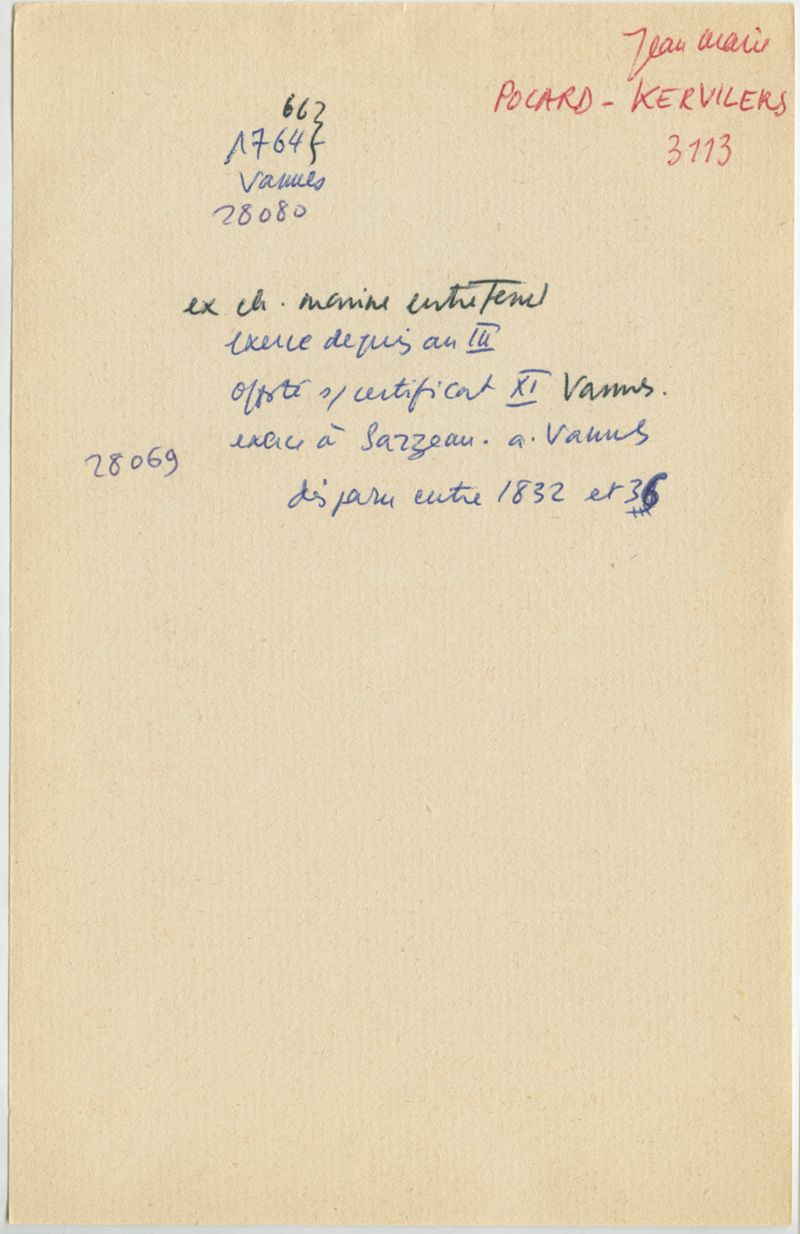 Jean Marie
POCARD - KERVILERS
3113
66?
1764
Vannes
28080
ex ch. marine entretenu
exerce depuis an III
s/ certificat XI Vannes.
exerce à Sarzeau. a. Vannes
28069
disparu entre 1832 et 36